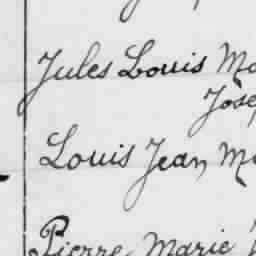 Jules Louis Ma
Josep
Louis Jean Ma
Pierre Marie